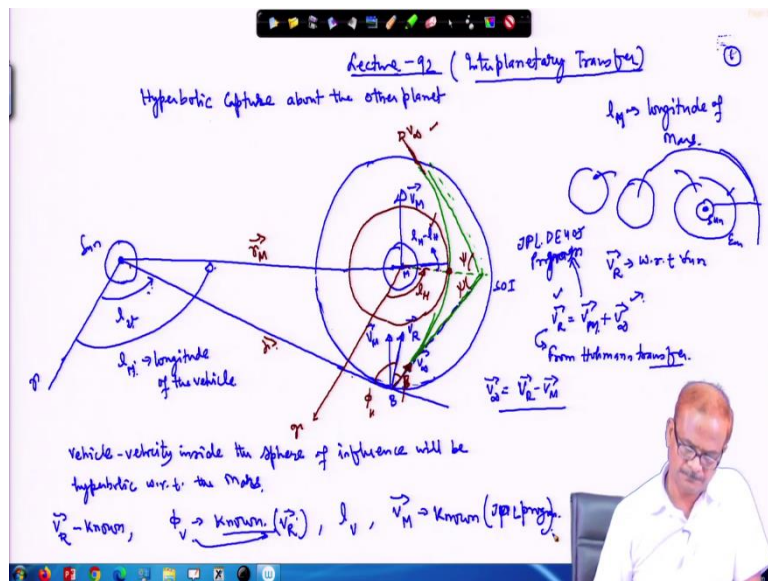 Lecture-92 (Interplanetary Transfer)
6
Hyperbolic Capture about the other planet
l_M → longitude of
Mars.
V∞ ✓
V_M
Sun
r_M
M
l_H
SOI
Ψ
Ψ
JPL DE405
Program
Sun
V_R → w.r.t Sun
V_R = V_M + V∞
from Hohmann transfer.
V∞ = V_R - V_M
l_M → longitude
of the vehicle
r
V_M
V_R
V∞
B
γ
γ
vehicle-velocity inside the sphere of influence will be
hyperbolic w.r.t. the Mars.
V_R - Known, ϕ_V → Known (V_R), l_V, V_M → Known (JPL progr.